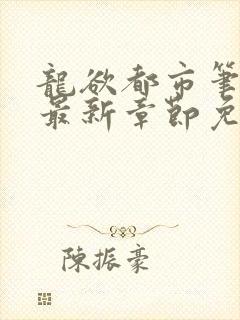 龍欲都市筆
最新章節免
陳振豪